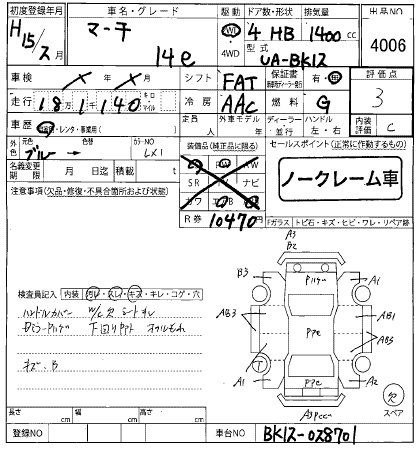 初度登録年月 車名・グレード 駆動 ドア数・形状 排気量 出品NO
H15/2月 マーチ 14e 2WD 4WD 4 HB 1400cc 4006
型式 UA-BK12
車検 年 月 シフト FAT 保証書 有・無 評価点 3
走行 18万1千140 キロ マイル 冷房 AAC 燃料 G
車歴 自家用・レンタ・事業用( ) 定員 人 外車モデル 年 ディーラー・並行 ハンドル 左・右 内装評価 C
外色 元色 ブルー 色替 カラーNO LX1 装備品(純正品に限る) セールスポイント(正常に作動するもの)
名義変更期限 月 日迄 積載 t PW SR ナビ ノークレーム車
注意事項(欠品・修復・不具合箇所および状態) カワ
R券 10470円 Fガラス トビ石・キズ・ヒビ・ワレ・リペア跡
A3
B2
B3 Pハゲ A1
検査員記入 内装 汚レ・スレ・キズ・キレ・コゲ・穴
ハンドルカバー W/L欠 シートキレ AB3 AB1
下回りサビ オイルもれ Pアセ AB5
キズ、B
A1 Pアセ A2
欠 スペア
長さ cm 幅 cm 高さ cm
登録NO 車台NO BK12-028701